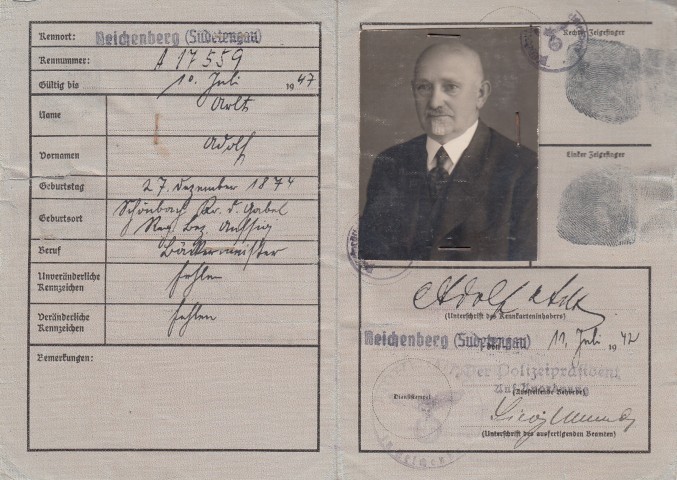 Kennort: Reichenberg (Sudetengau)
Kennummer: A 17559
Gültig bis 10. Juli 1947
Name Arlt
Vornamen Adolf
Geburtstag 27. Dezember 1874
Geburtsort Schönbach Kr. D. Gabel
Reg. Bez. Aussig
Beruf Bäckermeister
Unveränderliche
Kennzeichen fehlen
Veränderliche
Kennzeichen fehlen
Bemerkungen:
Rechter Zeigefinger
Linker Zeigefinger
Adolf Arlt
(Unterschrift des Kennkarteninhabers)
Reichenberg (Sudetengau) den 11. Juli 1942
Der Polizeipräsident
(Ausstellende Behörde)
Dienststempel
(Unterschrift des ausfertigenden Beamten)